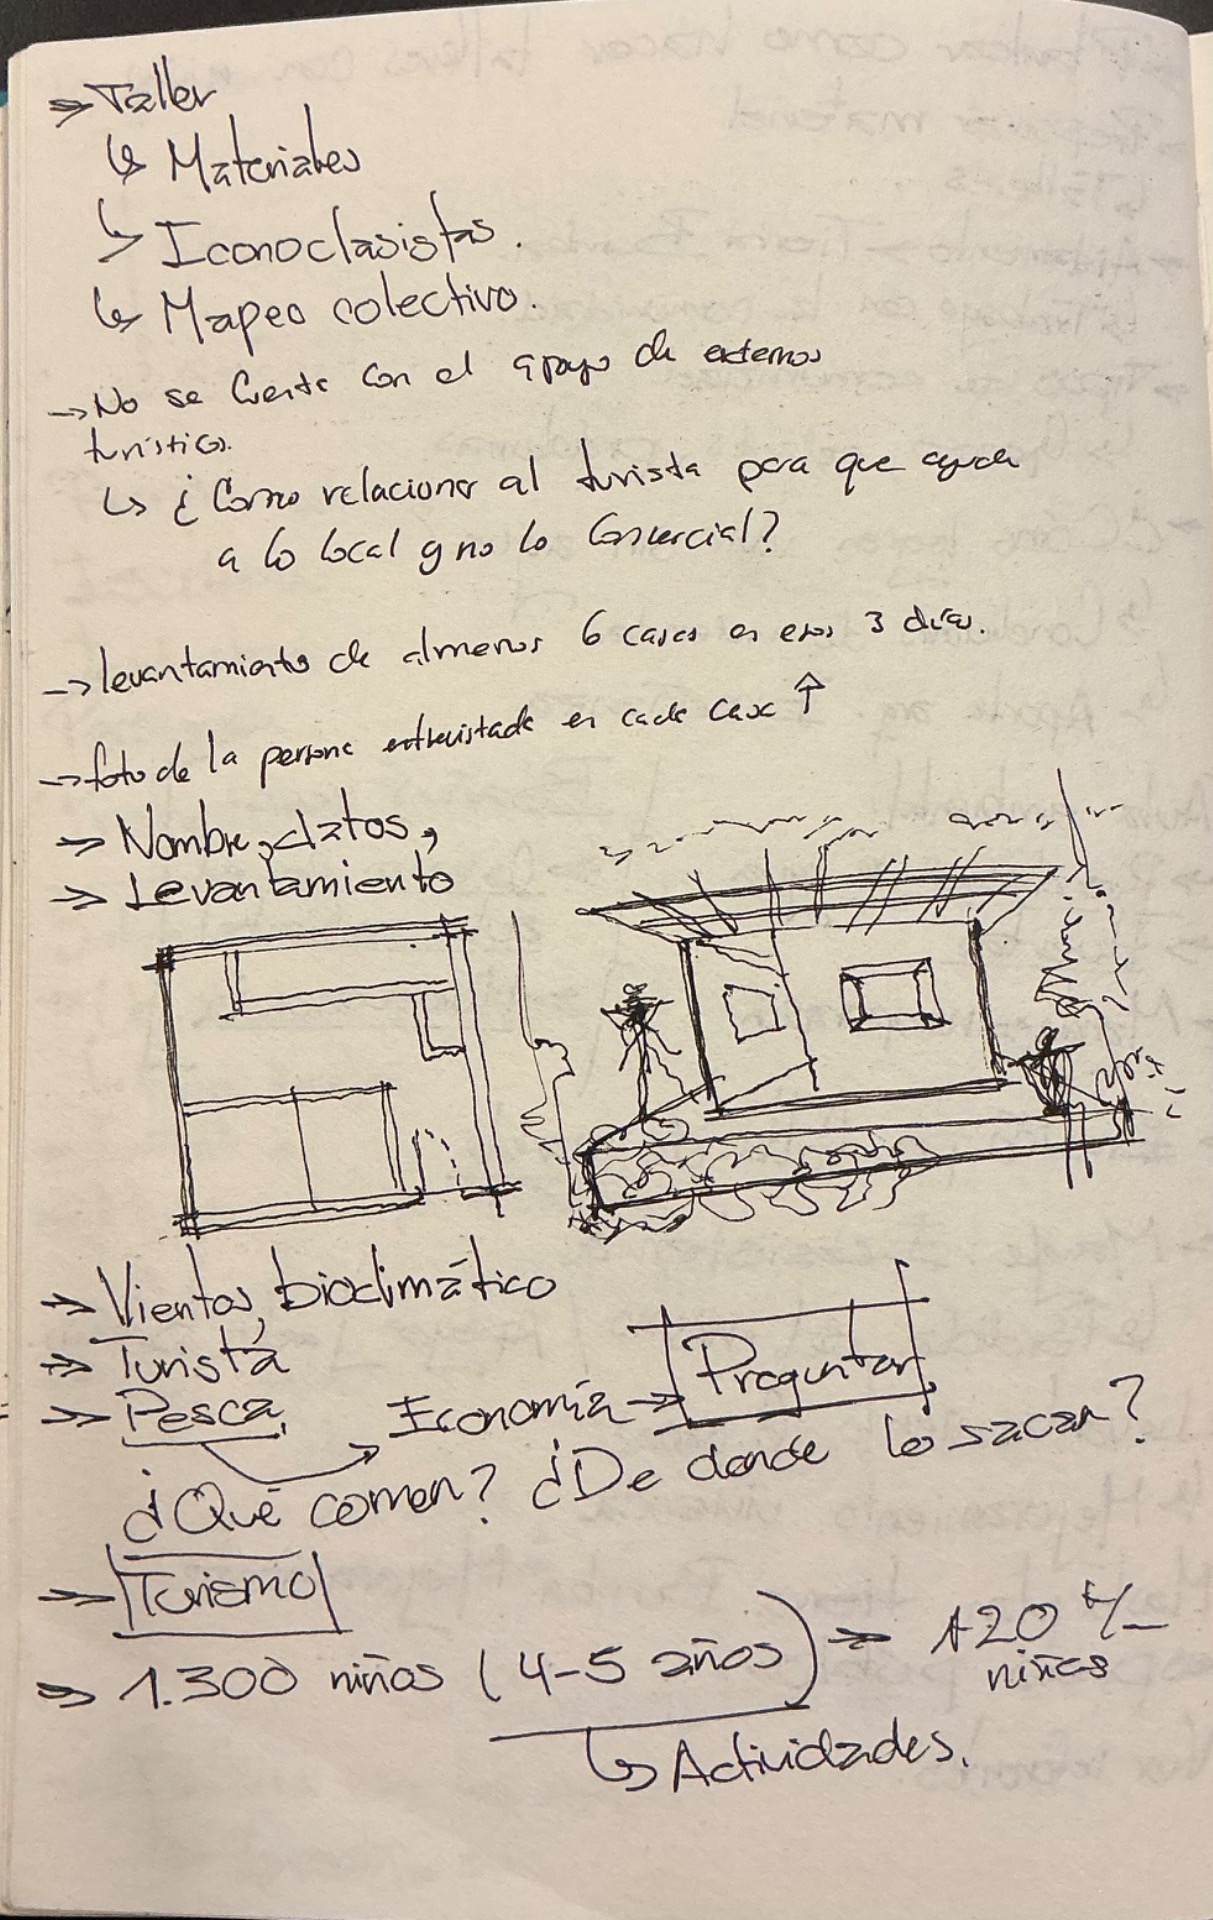 → Taller
↳ Materiales
↳ Iconoclasistas.
↳ Mapeo colectivo.
→ No se cuenta con el apoyo de externos
turísticos.
↳ ¿Como relacionar al turista para que ayude
a lo local y no lo comercial?
→ levantamiento de almenos 6 casas en esos 3 días.
→ foto de la persona entrevistada en cada casa ↑
→ Nombre, datos,
→ Levantamiento
→ Vientos, bioclimático
→ Turista
→ Pesca, Economía → Preguntar
¿Qué comen? ¿De donde lo sacan?
→ Turismo
→ 1.300 niños (4-5 años) → +20 %
niños
↳ Actividades.